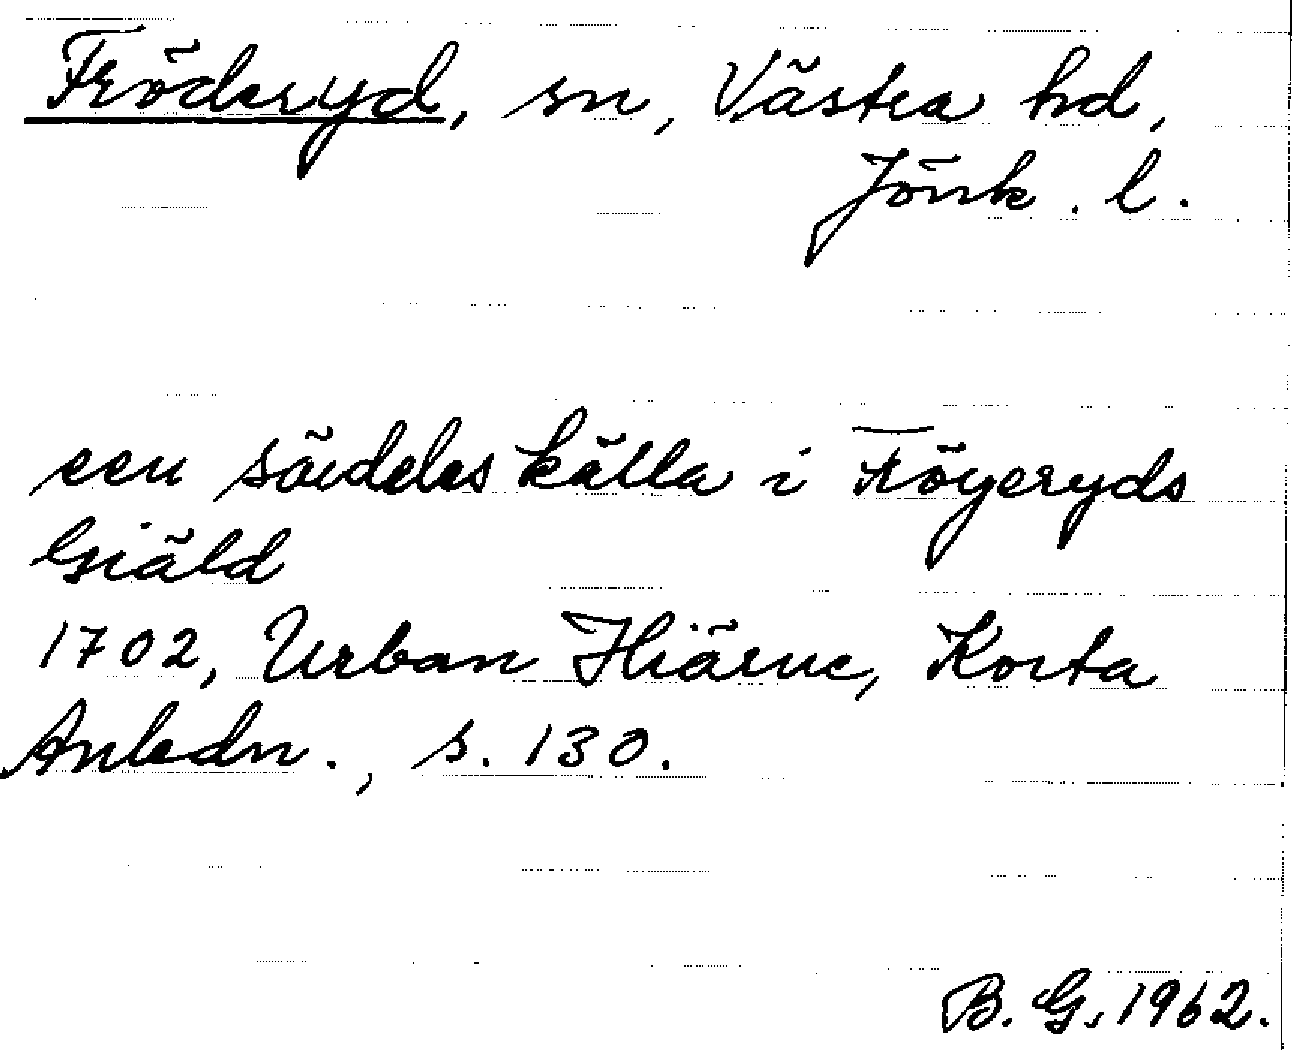 Fröderyd, sn, Västra hd,
Jönk. l.
een säideles källa i Fröyeryds
Giäld
1702, Urban Hiärne, Korta
Anledn., s. 130.
B. G. 1962.